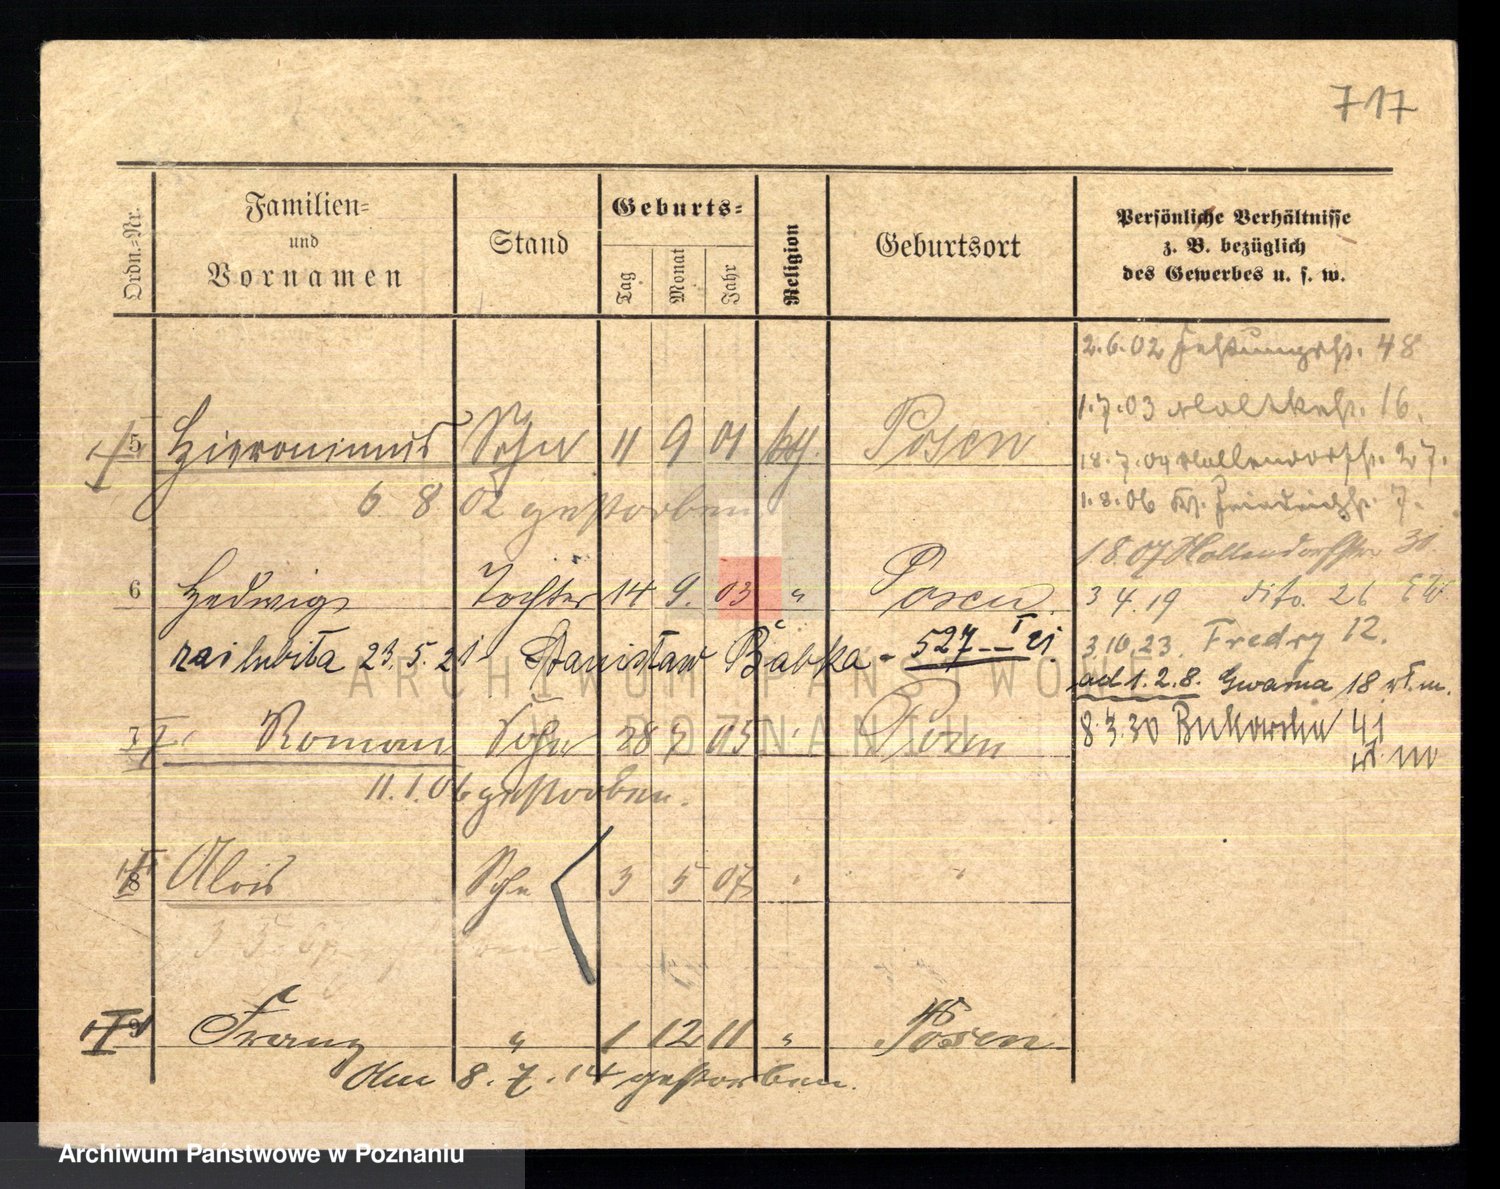 717
Ordn.-Nr.
Familien- und Vornamen
Stand
Geburts-
Tag Monat Jahr
Religion
Geburtsort
Persönliche Verhältnisse
z. B. bezüglich
des Gewerbes u. s. w.
2.6.02 Festungsstr. 48
1.7.03 Moltkestr. 16.
5 Hieronimus Sohn 11 9 01 kth. Posen
18.7.04 Hollendorfstr. 27.
6 8 02 gestorben
1.8.06 Friedrichstr. 7.
1 8.07 Hollendorffstr 31
6 Hedwig Tochter 14 9. 03 " Posen.
3 4.19 dito. 26
zaślubiła 23.5.21 Stanisław Bąbka - 527 -- I 21
3 10.23. Fredry 12.
ad 1.2.8. Gwarna 18 wł. m.
7 Roman Sohn 28 7 05 " Posen
8.3.30 Bukowska 41
wł. m
11.1.06 gestorben.
8 Alois Sohn 3 5 07 " "
gestorben
9 Franz " 1 12 11 " Posen
Am 8.7.14 gestorben.
ARCHIWUM PAŃSTWOWE
W POZNANIU
Archiwum Państwowe w Poznaniu